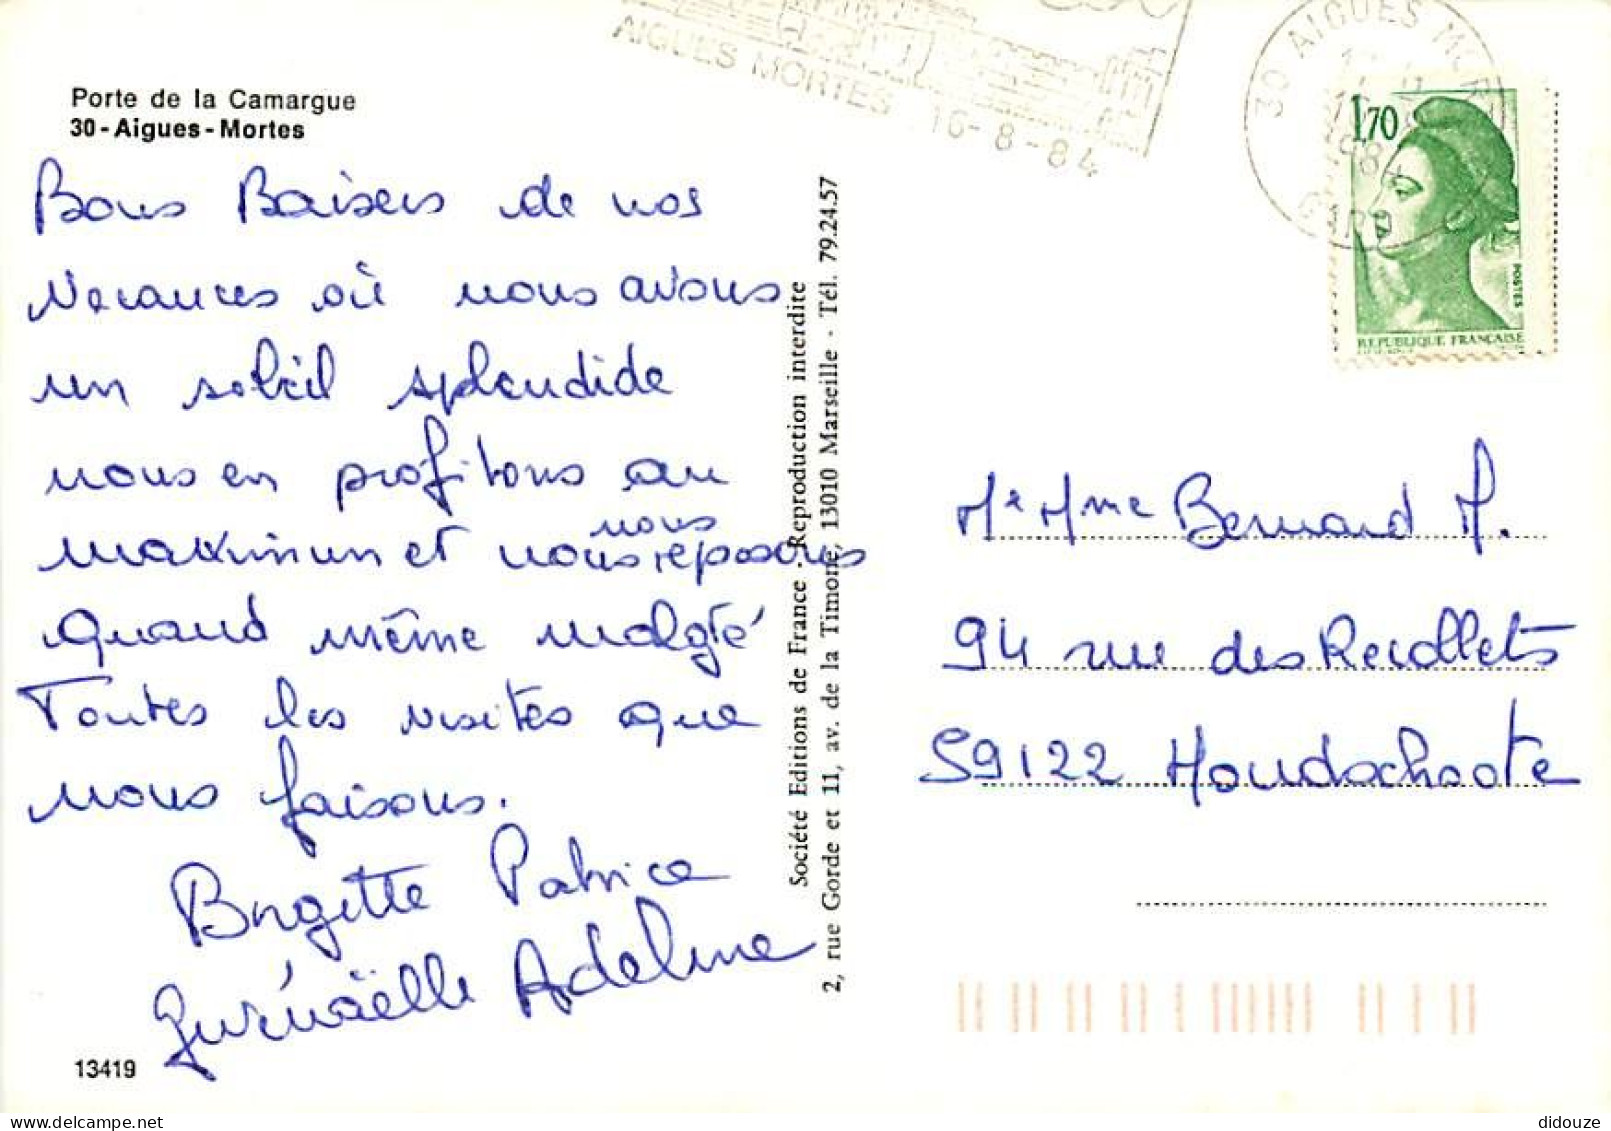 Porte de la Camargue
30 - Aigues - Mortes
Bons Baisers de nos
Vacances où nous avons
un soleil splendide
nous en profitons au
maximum et nous nous reposons
quand même malgré
Toutes les visites que
nous faisons.
Brigitte Patrice
Gwénaëlle Adeline
13419
Société Editions de France - Reproduction interdite
2, rue Gorde et 11, av. de la Timone, 13010 Marseille - Tél. 79.24.57
AIGUES MORTES 16-8-84
30 AIGUES MORTES
1984
GARD
1,70
POSTES
REPUBLIQUE FRANÇAISE
Mr Mme Bernard M.
94 rue des Recollets
59122 Hondschoote
didouze